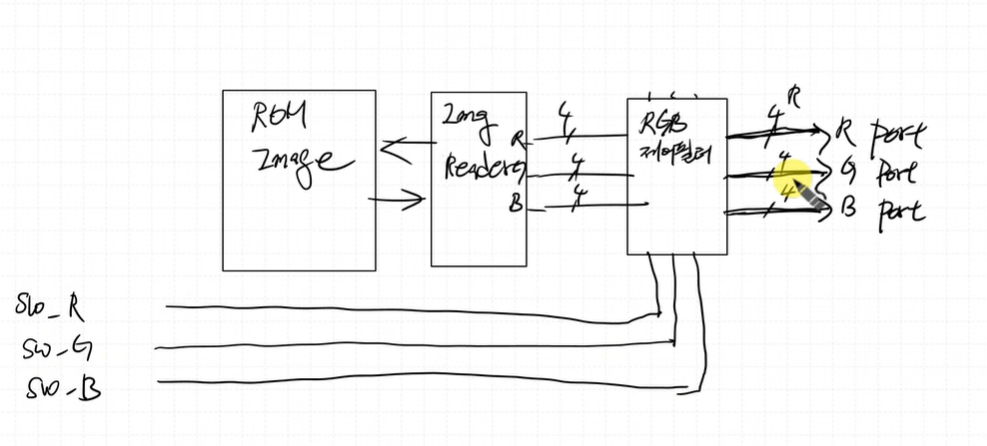 ROM
Image
Img
Reader
R
G
B
4
4
4
RGB
제어필터
4
R
4
4
R port
G port
B port
sw_R
sw_G
sw_B